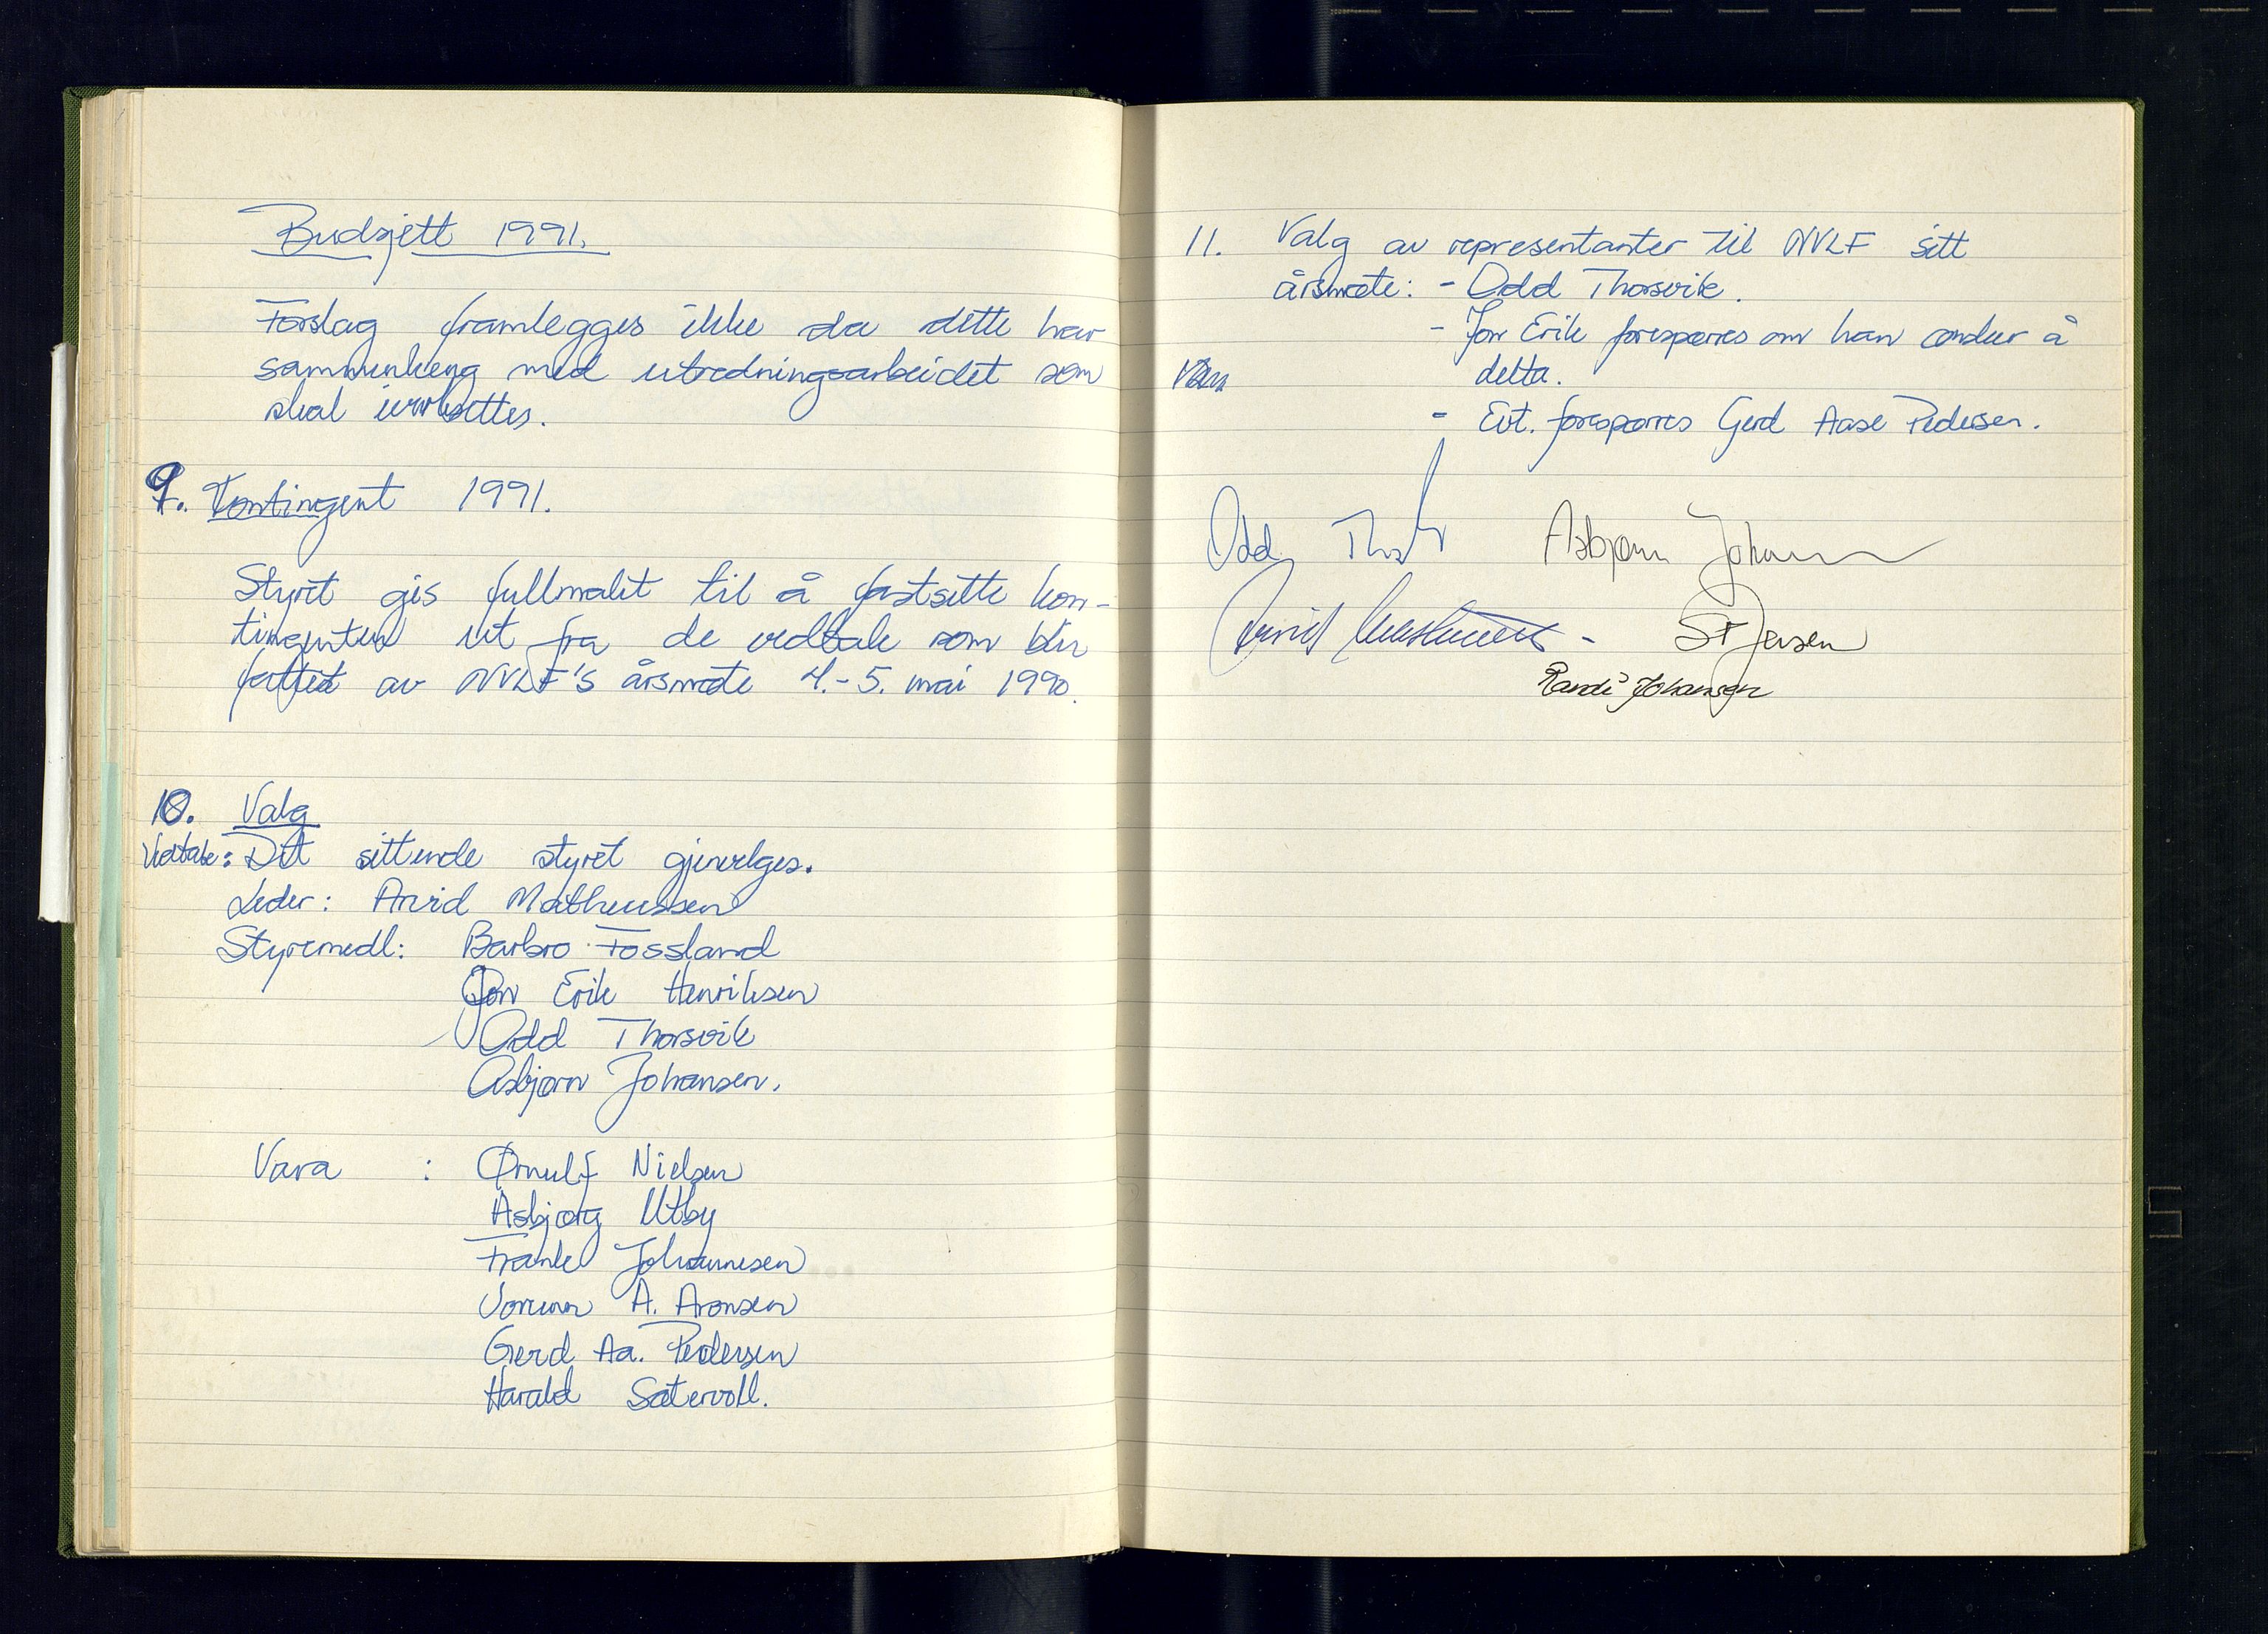 Budsjett 1991.
Forslag framlegges ikke da dette har
sammenheng med utredningsarbeidet som
skal iverksettes.
9. Kontingent 1991.
Styret gis fullmakt til å fastsette kon-
tingenten ut fra de vedtak som blir
fattet av NVLF's årsmøte 4.-5. mai 1990.
10. Valg
Vedtak: Det sittende styret gjenvelges.
Leder: Arvid Matheussen
Styremedl: Barbro Fossland
Jon Erik Henriksen
Odd Thorsvik
Asbjørn Johansen.
Vara : Ørnulf Nielsen
Asbjørg Utby
Frank Johannesen
Jorunn A. Aronsen
Gerd Aa. Pedersen
Harald Sætervoll.
11. Valg av representanter til NVLF sitt
årsmøte: - Odd Thorsvik.
- Jon Erik forespørres om han ønsker å
delta.
- Evt. forespørres Gerd Aase Pedersen.
Odd Asbjørn Johansen
Arvid Matheussen - St Jensen
Randi Johansen